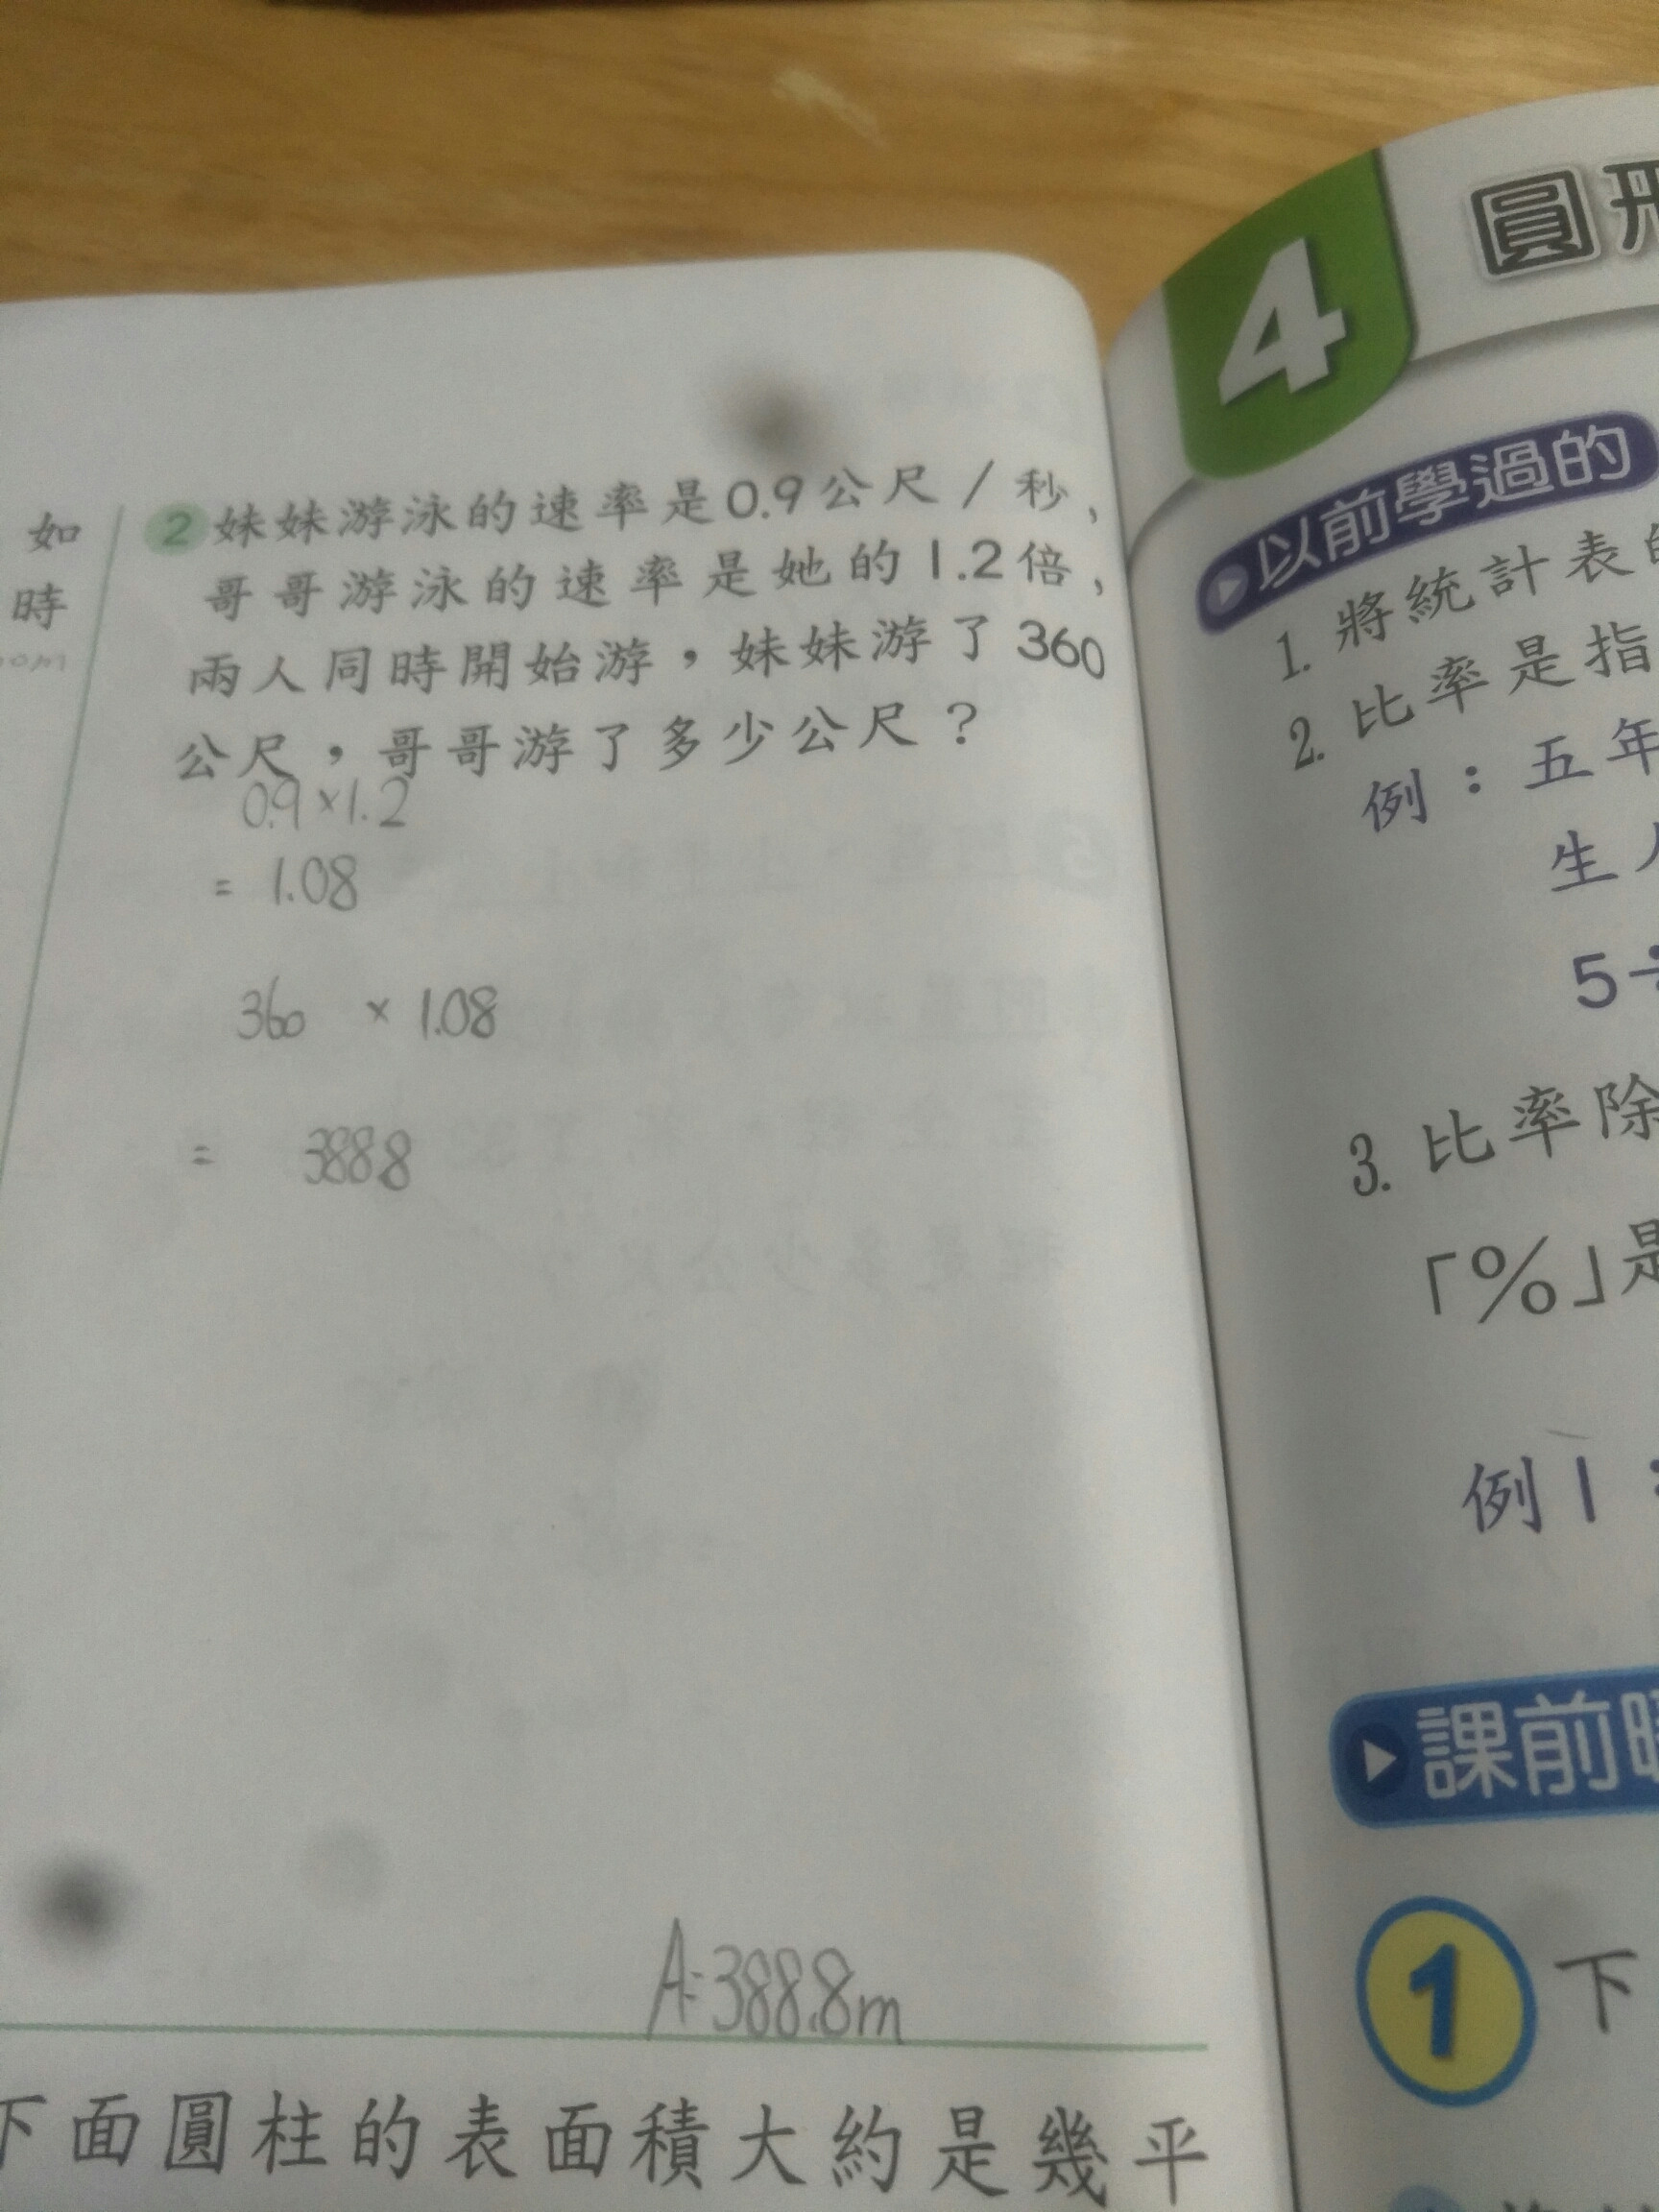 如
時
2 妹妹游泳的速率是0.9公尺/秒,
哥哥游泳的速率是她的1.2倍,
兩人同時開始游,妹妹游了360
公尺,哥哥游了多少公尺?
0.9×1.2
= 1.08
360 × 1.08
= 388.8
A:388.8m
下面圓柱的表面積大約是幾平
4 圓形
以前學過的
1. 將統計表
2. 比率是指
例:五年
生
5÷
3. 比率除
「%」是
例1:
課前
1 下